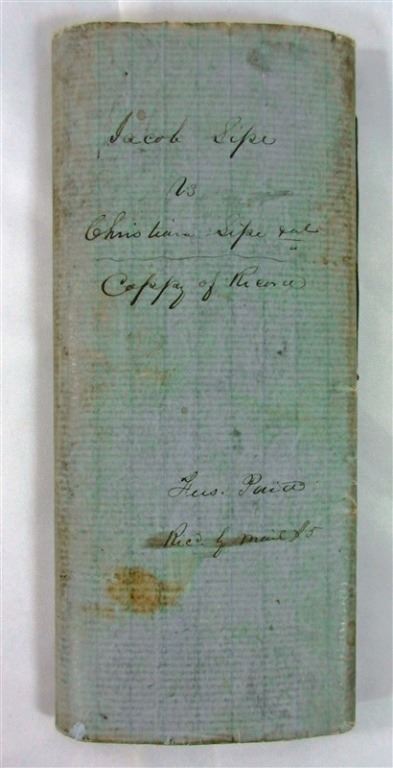 Jacob Sipe
Vs
Christian Sipe & al
Coppy of Record
Fees. Paid
Recd. by mail $5